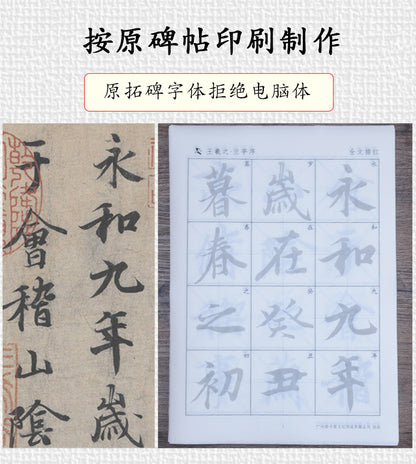 按原碑帖印刷制作
原拓碑字体拒绝电脑体
永和九年歲
于會稽山陰
王羲之·兰亭序
全文描红
永和九年
歲在癸丑
暮春之初